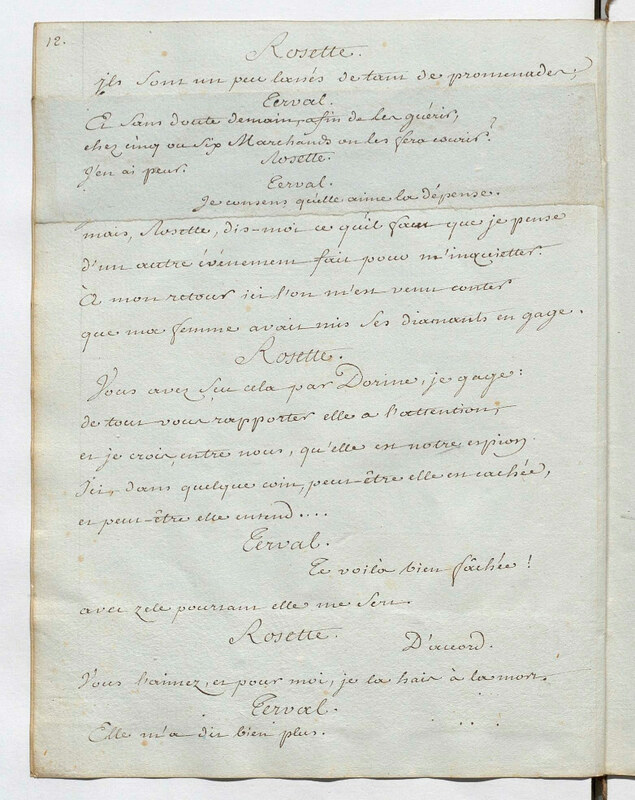 12.
Rosette.
ils sont un peu lassés de tant de promenades,
Terval.
Et sans doute demain, afin de les guérir,
chez cinq ou six Marchands on les fera courir?
Rosette.
J'en ai peur.
Terval.
Je consens qu'elle aime la dépense.
mais, Rosette, dis-moi ce qu'il faut que je pense
d'un autre événement fait pour m'inquietter.
À mon retour ici l'on m'est venu conter
que ma femme avait mis ses diamants en gage.
Rosette.
Vous avez su cela par Dorine, je gage:
de tout vous rapporter elle a l'attention,
et je crois, entre nous, qu'elle est notre espion.
Ici, dans quelque coin, peut-être elle est cachée,
et peut-être elle entend....
Terval.
Te voilà bien fâchée!
avec zele pourtant elle me sert.
Rosette.
D'accord.
Vous l'aimez, et pour moi, je la hais à la mort.
Terval.
Elle m'a dit bien plus. ...